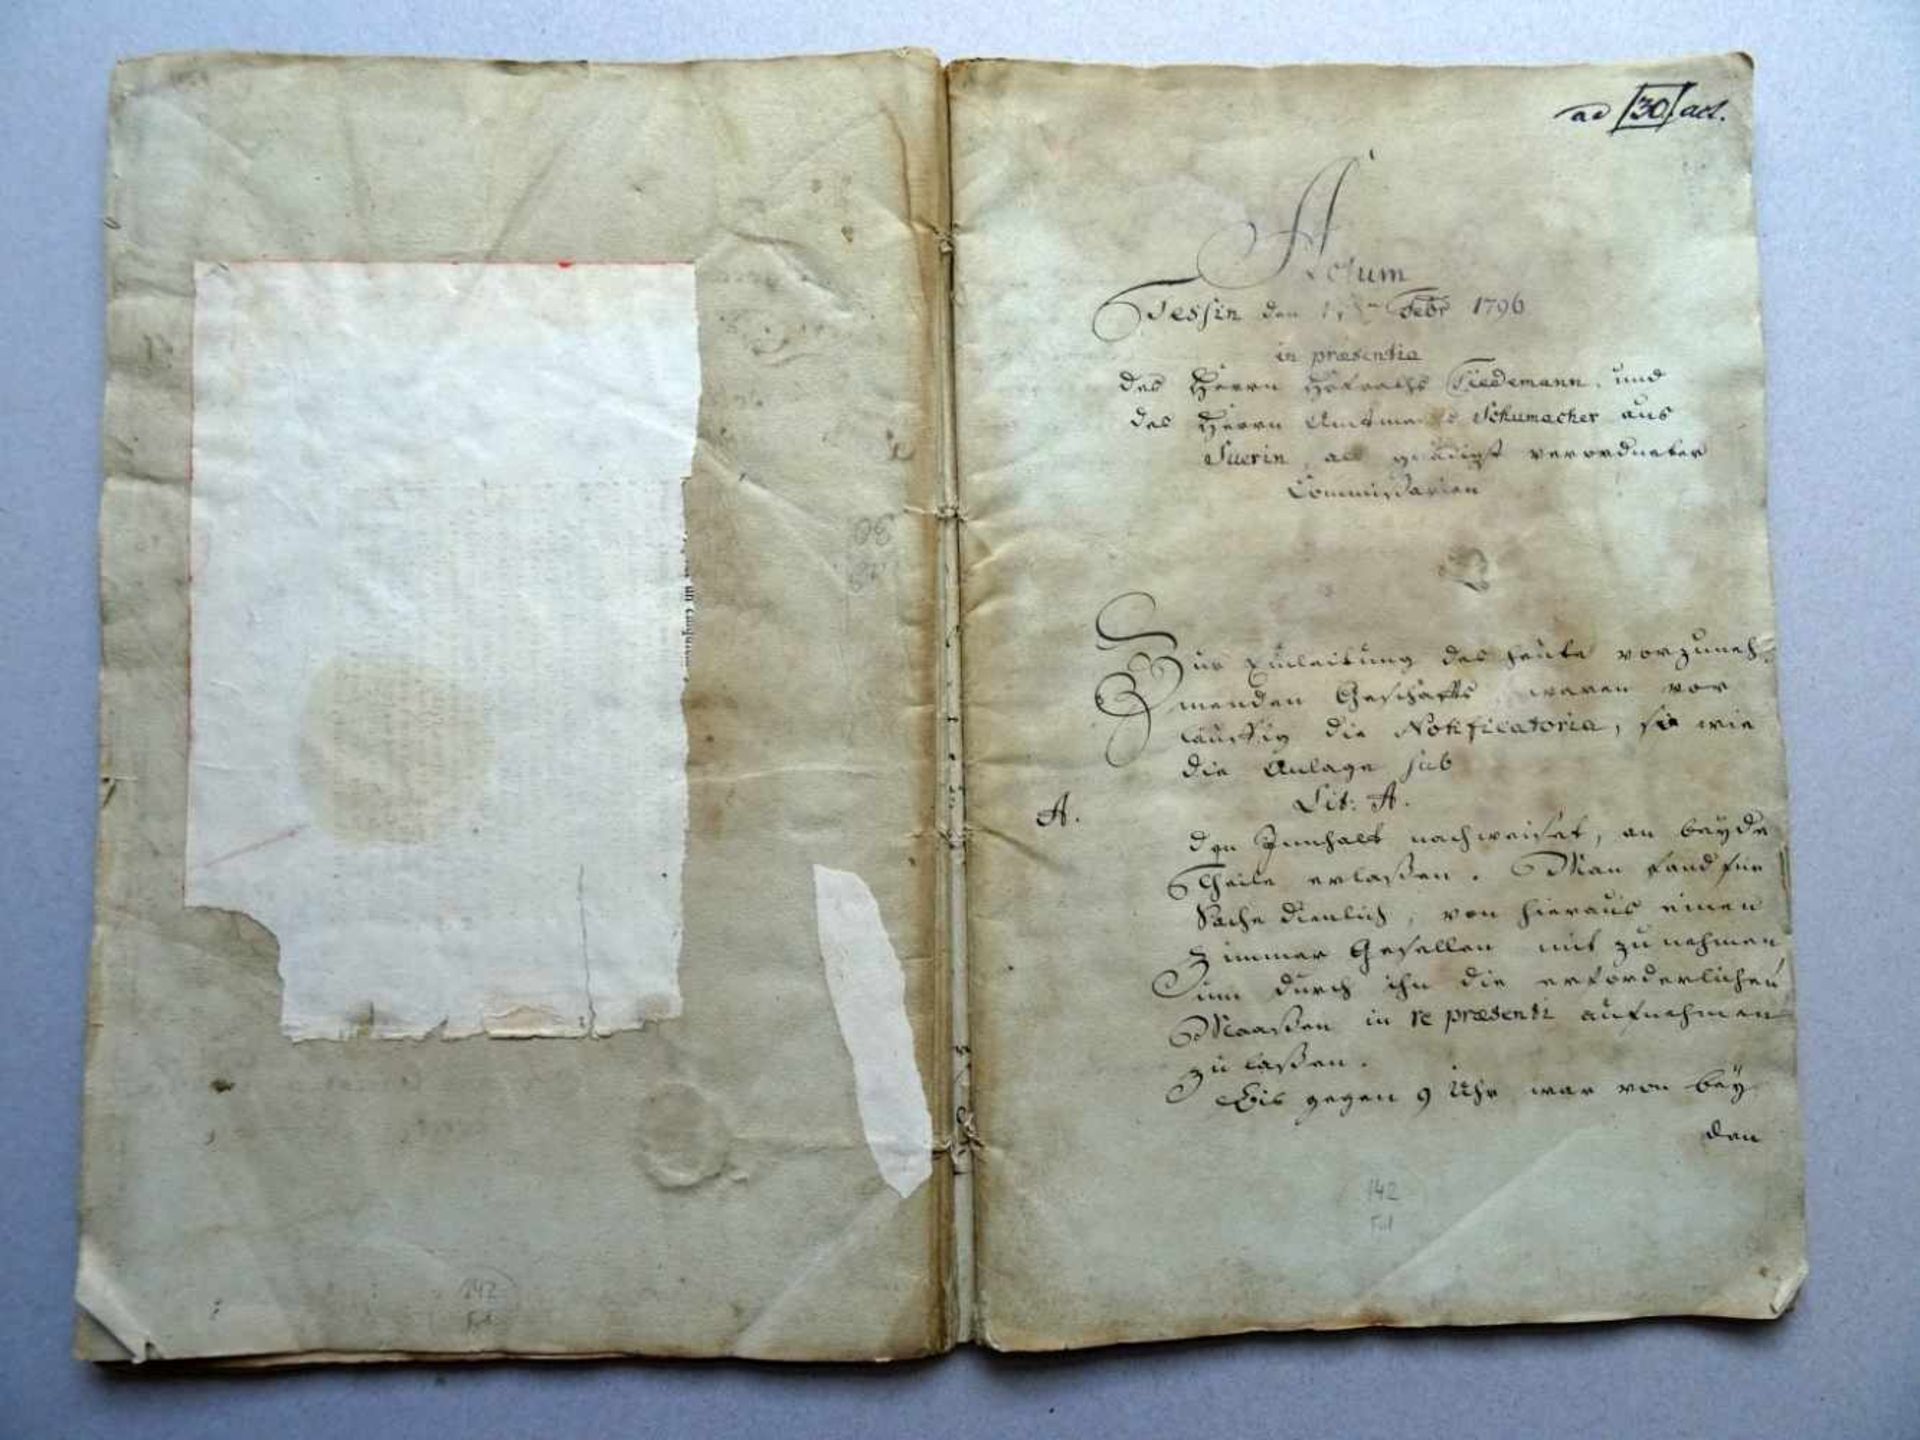 ad [30] act.
Actum
Tessin den Febr 1796
in præsentia
des Herrn Hofraths Tiedemann und
des Herrn Amtmanns Schumacher aus
Suerin, als gnädigst verordneter
Commissarien
Zur Einleitung des heute vorzuneh-
menden Geschäfts, waren vor
läuffig die Notificatoria, so wie
die Anlage sub
A. Lit: A.
den Innhalt nachweiset, an beyde
Theile erlaßen. Man fand für
Sache dienlich, von hieraus einen
Zimmer Gesellen mit zu nehmen
um durch ihn die erforderlichen
Maaßen in re præsenti aufnehmen
zu laßen.
Bis gegen 9 Uhr war von bey
den
142
Fol
30
142